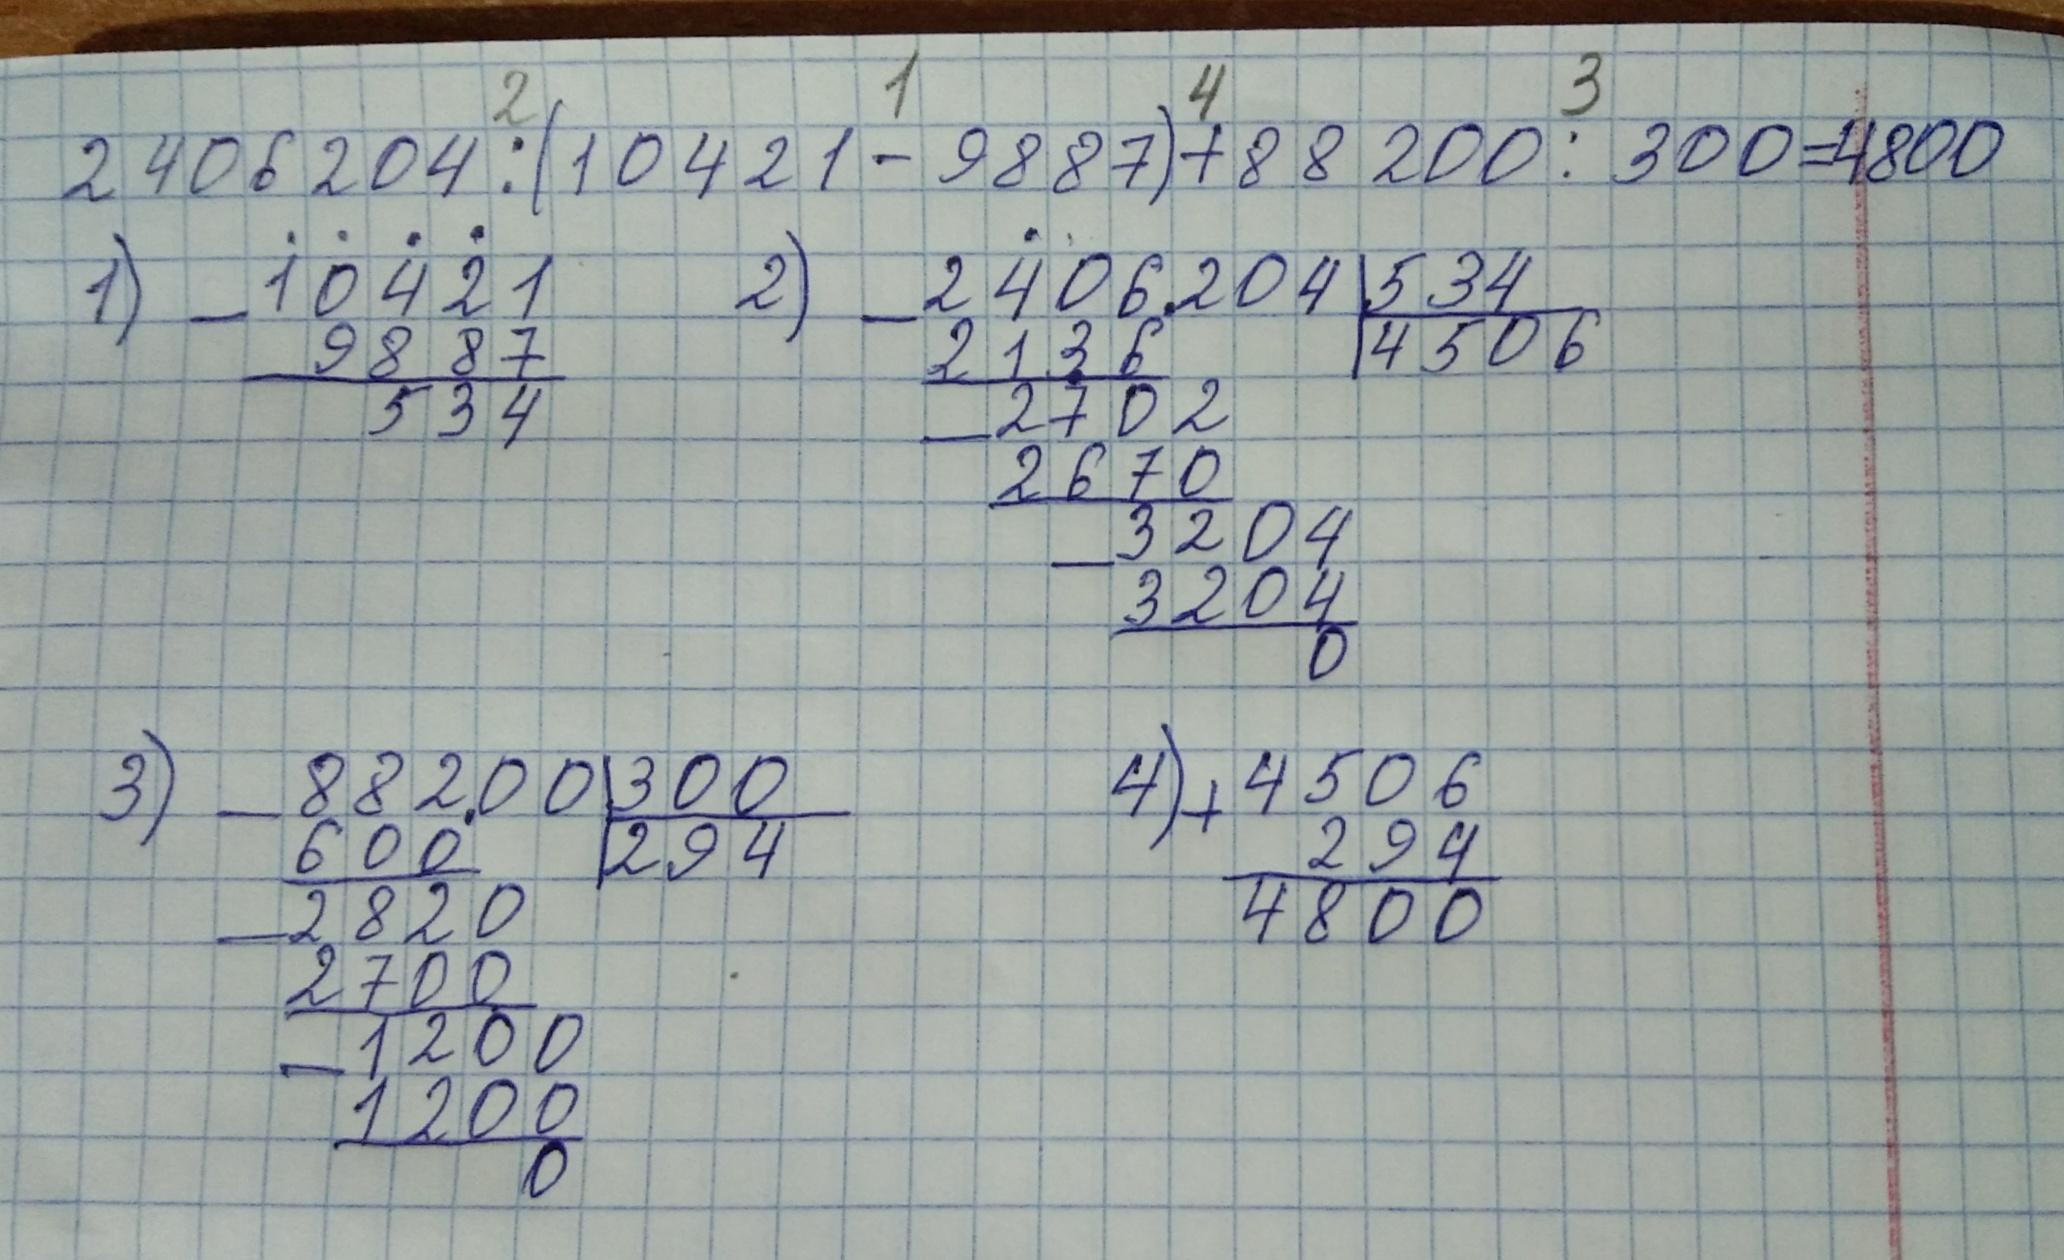 2 1 4 3
2406204:(10421-9887)+88200:300=4800
1) -10421
9887
534
2) -2406.204 534
2136 4506
-2702
2670
-3204
3204
0
3) -882.00 300
600 294
-2820
2700
-1200
1200
0
4) +4506
294
4800